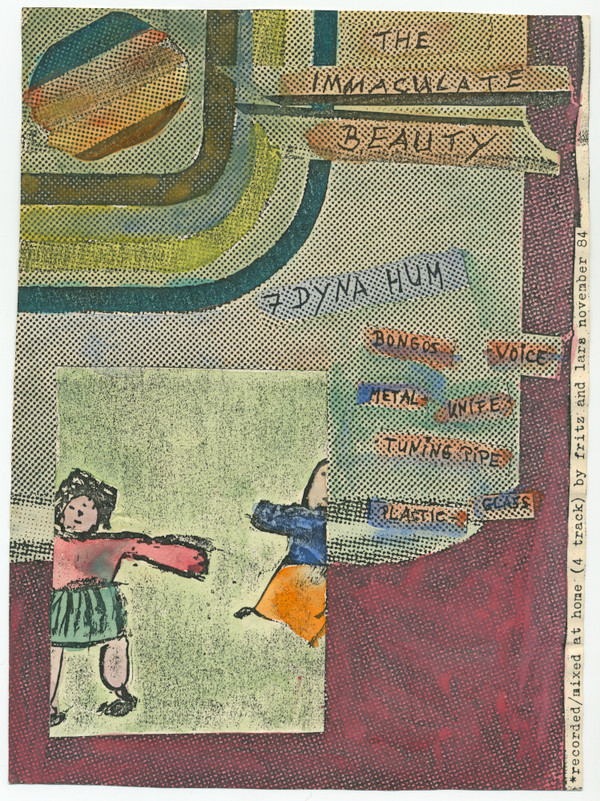 THE
IMMACULATE
BEAUTY
7 DYNA HUM
BONGOS VOICE
METAL KNIFE
TUNING PIPE
PLASTIC GLASS
*recorded/mixed at home (4 track) by fritz and lars november 84